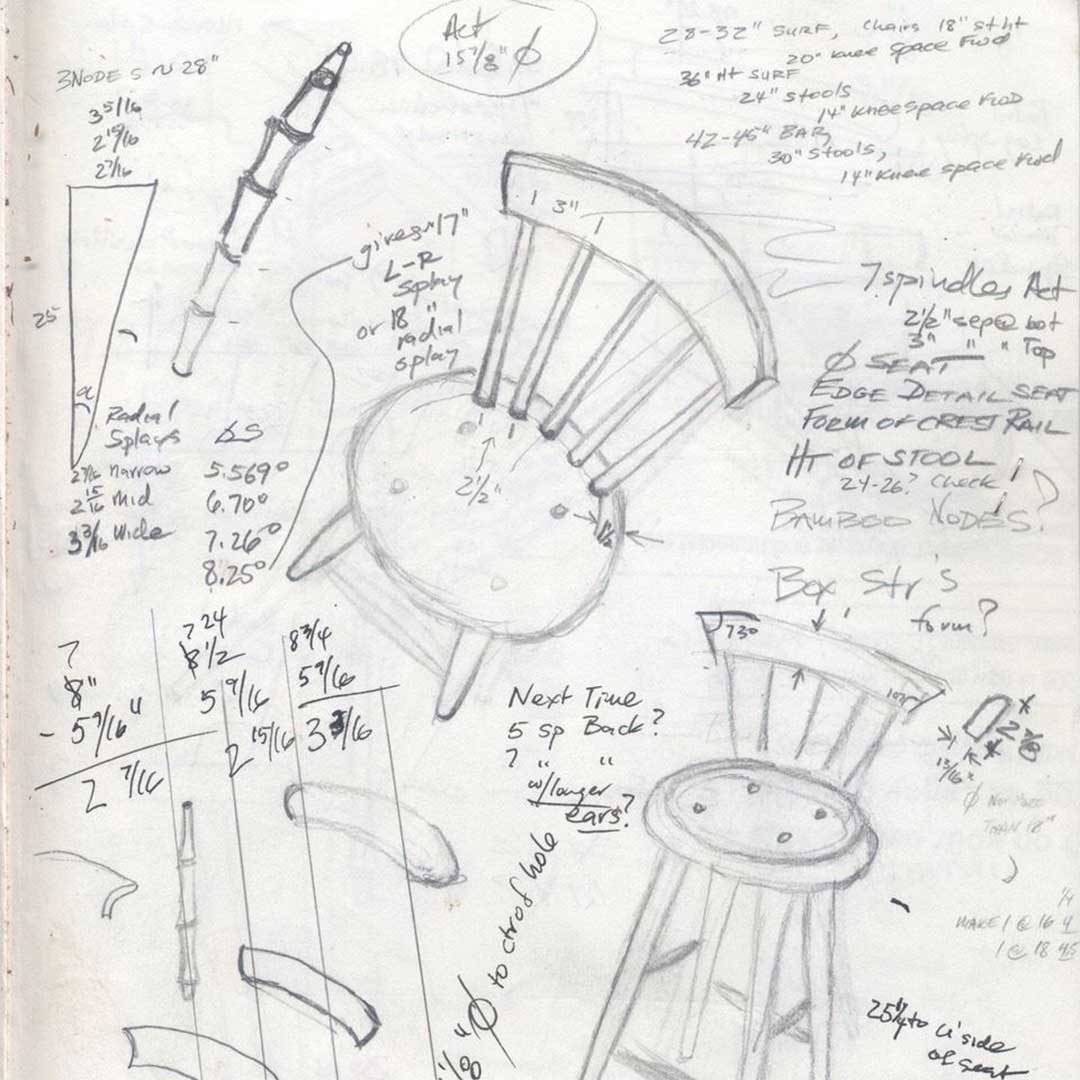 Act
15 7/8" Ø
28-32" SURF, Chairs 18" st ht
20" Knee space Fwd
36" Ht SURF
24" stools
14" Kneespace Fwd
42-45" BAR,
30" Stools,
14" Knee space Fwd
3 NODES ~ 28"
3 5/16
2 15/16
2 7/16
25
α
Radial
Splays
∆S
2 7/16 narrow 5.569°
2 15/16 mid 6.70°
3 3/16 Wide 7.26°
8.25°
gives ~17"
L-R
Splay
or 18"
radial
splay
3"
2 1/2"
1 1/2
7 spindles Act
2 1/2" sep @ bot
3" " " Top
Ø SEAT
EDGE DETAIL SEAT
FORM OF CREST RAIL
HT OF STOOL
24-26? Check!
BAMBOO NODES?
Box Str's
form?
73°
107°
7
8"
- 5 9/16"
2 7/16
7 24
8 1/2
5 9/16
2 15/16
8 3/4
5 9/16
3 3/16
Next Time
5 sp Back?
7 " "
w/longer
ears?
13/16"
Ø No MORE
THAN 18"
MAKE 1 @ 16
1 @ 18
Ø to ctr of hole
25 1/4 to u'side
of seat